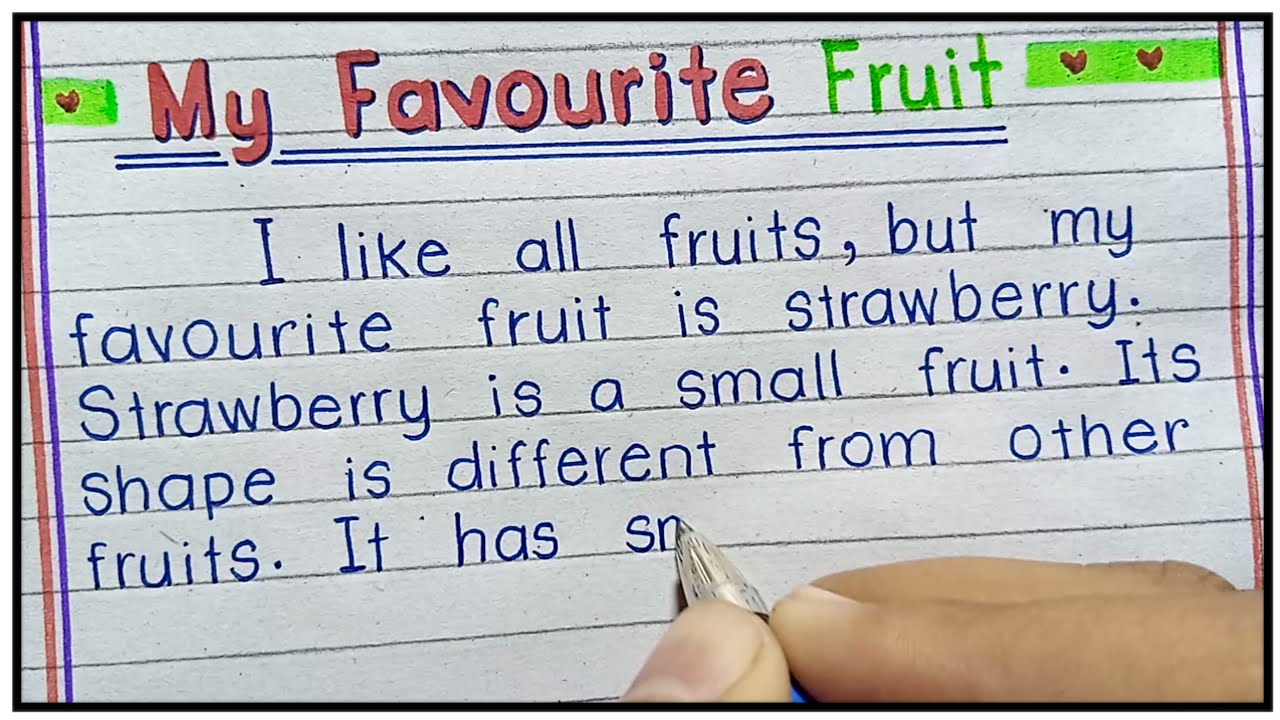 My Favourite Fruit
I like all fruits, but my
favourite fruit is strawberry.
Strawberry is a small fruit. Its
shape is different from other
fruits. It has